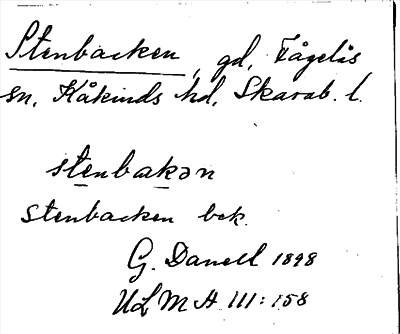 Stenbacken, gd, Fågelås
sn, Kåkinds hd, Skarab. l.
stenbakən
Stenbacken bek.
G. Danell 1898
ULMA 111:158